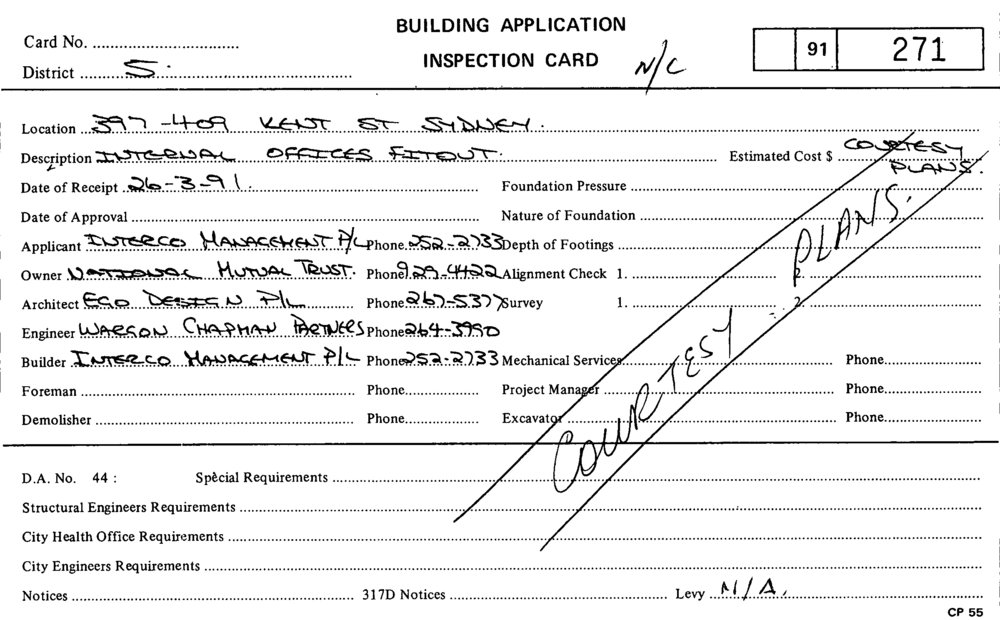 BUILDING APPLICATION
INSPECTION CARD
N/C
91 271
Card No.
District S.
Location 397-409 KENT ST SYDNEY.
Description INTERNAL OFFICES FITOUT. Estimated Cost $ COURTESY PLANS.
Date of Receipt 26-3-91. Foundation Pressure
Date of Approval Nature of Foundation
Applicant INTERCO MANAGEMENT P/L Phone 252-2733 Depth of Footings
Owner NATIONAL MUTUAL TRUST. Phone 929-4422 Alignment Check 1. 2.
Architect EGO DESIGN P/L Phone 267-5377 Survey 1. 2.
Engineer WARGON CHAPMAN PARTNERS Phone 264-3990
Builder INTERCO MANAGEMENT P/L Phone 252-2733 Mechanical Services Phone
Foreman Phone Project Manager Phone
Demolisher Phone Excavator Phone
COURTESY PLANS.
D.A. No. 44 : Special Requirements
Structural Engineers Requirements
City Health Office Requirements
City Engineers Requirements
Notices 317D Notices Levy N/A.
CP 55